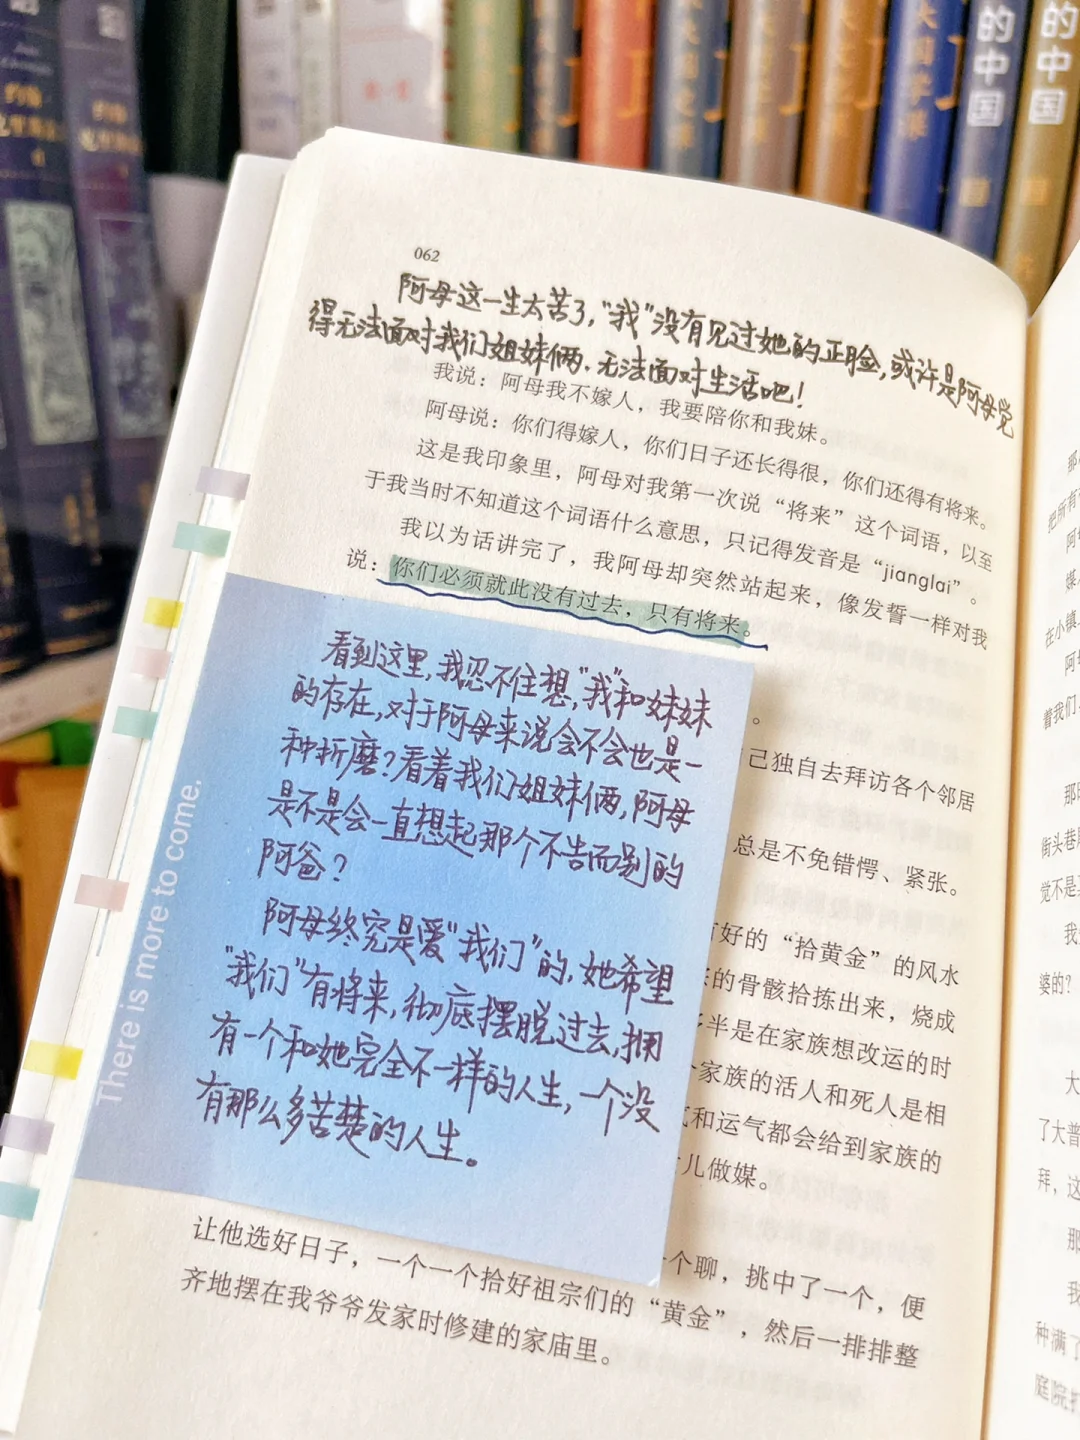 062
阿母这一生太苦了，“我”没有见过她的正脸，或许是阿母觉
得无法面对我们姐妹俩、无法面对生活吧！
我说：阿母我不嫁人，我要陪你和我妹。
阿母说：你们得嫁人，你们日子还长得很，你们还得有将来。
这是我印象里，阿母对我第一次说“将来”这个词语，以至
于我当时不知道这个词语什么意思，只记得发音是“jianglai”。
我以为话讲完了，我阿母却突然站起来，像发誓一样对我
说：你们必须就此没有过去，只有将来。
看到这里，我忍不住想，“我”和妹妹
的存在，对于阿母来说会不会也是一
种折磨？看着我们姐妹俩，阿母
是不是会一直想起那个不告而别的
阿爸？
阿母终究是爱“我们”的，她希望
“我们”有将来，彻底摆脱过去，拥
有一个和她完全不一样的人生，一个没
有那么多苦楚的人生。
There is more to come.
。
己独自去拜访各个邻居
总是不免错愕、紧张。
好的“拾黄金”的风水
的骨骸拾拣出来，烧成
半是在家族想改运的时
家族的活人和死人是相
和运气都会给到家族的
儿做媒。
个聊，挑中了一个，便
让他选好日子，一个一个拾好祖宗们的“黄金”，然后一排排整
齐地摆在我爷爷发家时修建的家庙里。
把所有
在小镇
着我们
那
街头巷
觉不是
我
婆的？
大
了大普
拜，这
那
我
种满了
庭院
的中国
的中国